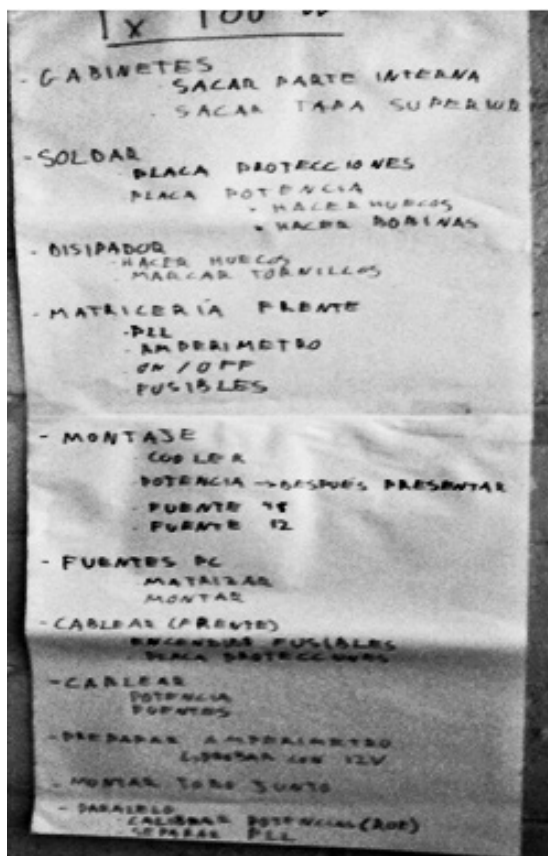 TX 100 W
- GABINETES
· SACAR PARTE INTERNA
· SACAR TAPA SUPERIOR
- SOLDAR
· PLACA PROTECCIONES
PLACA POTENCIA
· HACER HUECOS
· HACER BOBINAS
- DISIPADOR
- HACER HUECOS
- MARCAR TORNILLOS
- MATRICERÍA FRENTE
· PLL
· AMPERIMETRO
· ON / OFF
· FUSIBLES
- MONTAJE
COOLER
POTENCIA → DESPUÉS PRESENTAR
· FUENTE 48
· FUENTE 12
- FUENTES PC
MATRIZAR
MONTAR
- CABLEAR (FRENTE)
FUSIBLES
· PLACA PROTECCIONES
- CABLEAR
POTENCIA
FUENTES
- PREPARAR AMPERIMETRO
PROBAR CON 12V
- MONTAR TODO JUNTO
- PARALELO
- CALIBRAR POTENCIAS
SEPARAR PLL